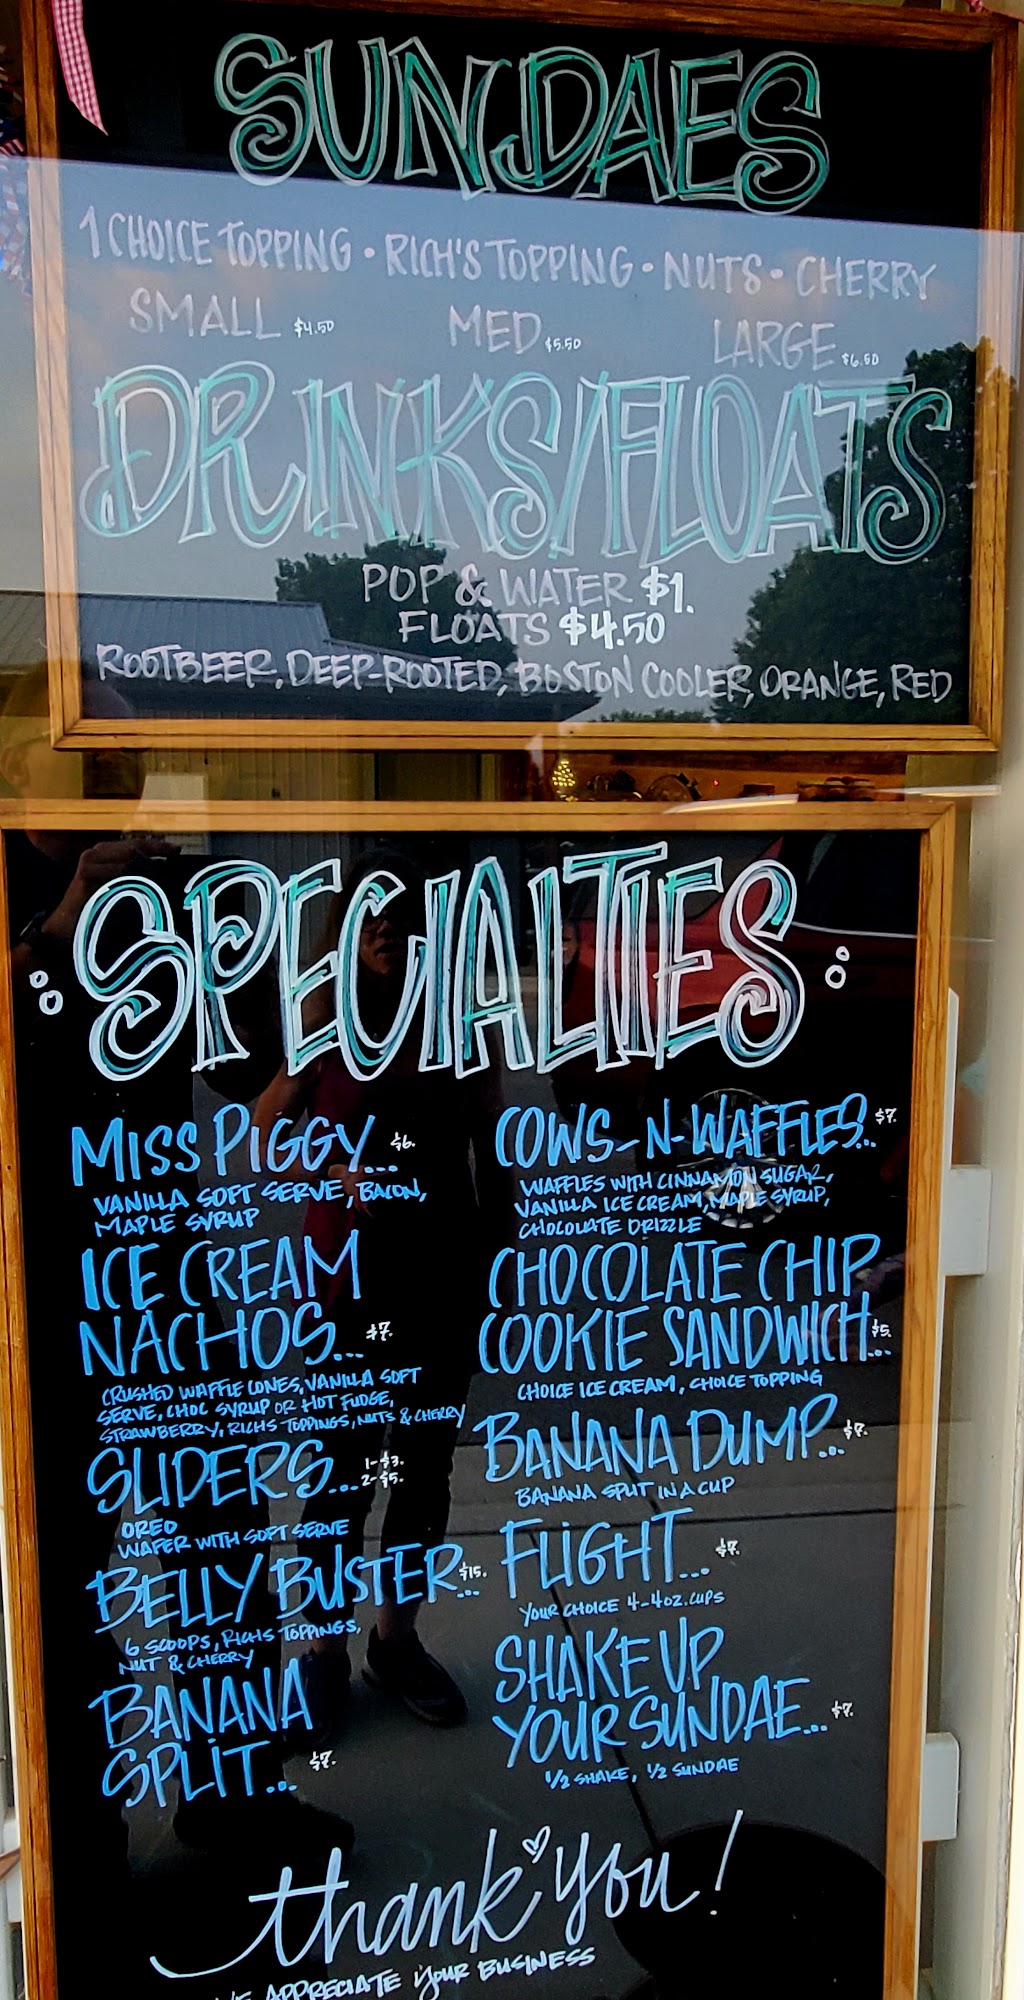 SUNDAES
1 CHOICE TOPPING • RICH'S TOPPING • NUTS • CHERRY
SMALL $4.50 MED $5.50 LARGE $6.50
DRINKS/FLOATS
POP & WATER $1.
FLOATS $4.50
ROOTBEER, DEEP-ROOTED, BOSTON COOLER, ORANGE, RED
SPECIALTIES
MISS PIGGY... $6.
VANILLA SOFT SERVE, BACON,
MAPLE SYRUP
ICE CREAM
NACHOS... $7.
CRUSHED WAFFLE CONES, VANILLA SOFT
SERVE, CHOC SYRUP OR HOT FUDGE,
STRAWBERRY, RICHS TOPPINGS, NUTS & CHERRY
SLIDERS... 1-$3.
2-$5.
OREO
WAFER WITH SOFT SERVE
BELLY BUSTER... $15.
6 SCOOPS, RICHS TOPPINGS,
NUT & CHERRY
BANANA
SPLIT... $7.
COWS-N-WAFFLES... $7.
WAFFLES WITH CINNAMON SUGAR,
VANILLA ICE CREAM, MAPLE SYRUP,
CHOCOLATE DRIZZLE
CHOCOLATE CHIP
COOKIE SANDWICH... $5.
CHOICE ICE CREAM, CHOICE TOPPING
BANANA DUMP... $7.
BANANA SPLIT IN A CUP
FLIGHT... $7.
YOUR CHOICE 4-4OZ. CUPS
SHAKE UP
YOUR SUNDAE... $7.
1/2 SHAKE, 1/2 SUNDAE
thank you!
WE APPRECIATE YOUR BUSINESS